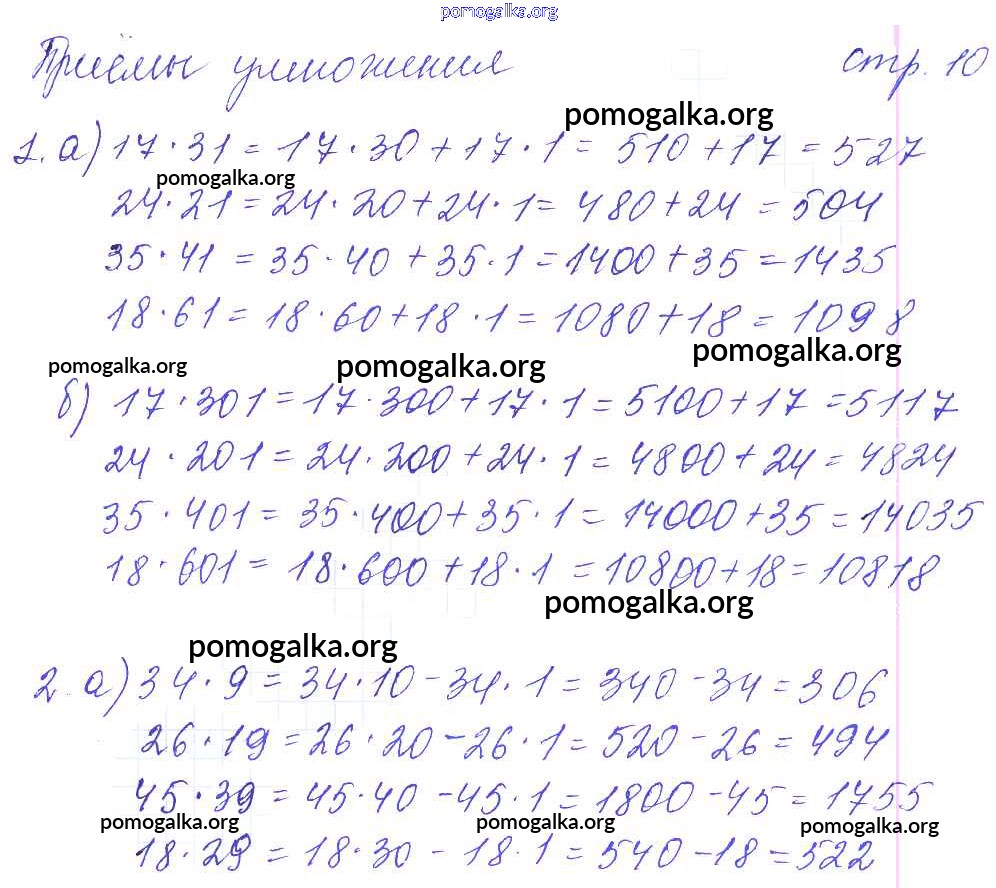 pomogalka.org
Приёмы умножения стр. 10
pomogalka.org
1. а) 17 · 31 = 17 · 30 + 17 · 1 = 510 + 17 = 527
pomogalka.org
24 · 21 = 24 · 20 + 24 · 1 = 480 + 24 = 504
35 · 41 = 35 · 40 + 35 · 1 = 1400 + 35 = 1435
18 · 61 = 18 · 60 + 18 · 1 = 1080 + 18 = 1098
pomogalka.org pomogalka.org pomogalka.org
б) 17 · 301 = 17 · 300 + 17 · 1 = 5100 + 17 = 5117
24 · 201 = 24 · 200 + 24 · 1 = 4800 + 24 = 4824
35 · 401 = 35 · 400 + 35 · 1 = 14000 + 35 = 14035
18 · 601 = 18 · 600 + 18 · 1 = 10800 + 18 = 10818
pomogalka.org
pomogalka.org
2. а) 34 · 9 = 34 · 10 - 34 · 1 = 340 - 34 = 306
26 · 19 = 26 · 20 - 26 · 1 = 520 - 26 = 494
45 · 39 = 45 · 40 - 45 · 1 = 1800 - 45 = 1755
pomogalka.org pomogalka.org pomogalka.org
18 · 29 = 18 · 30 - 18 · 1 = 540 - 18 = 522